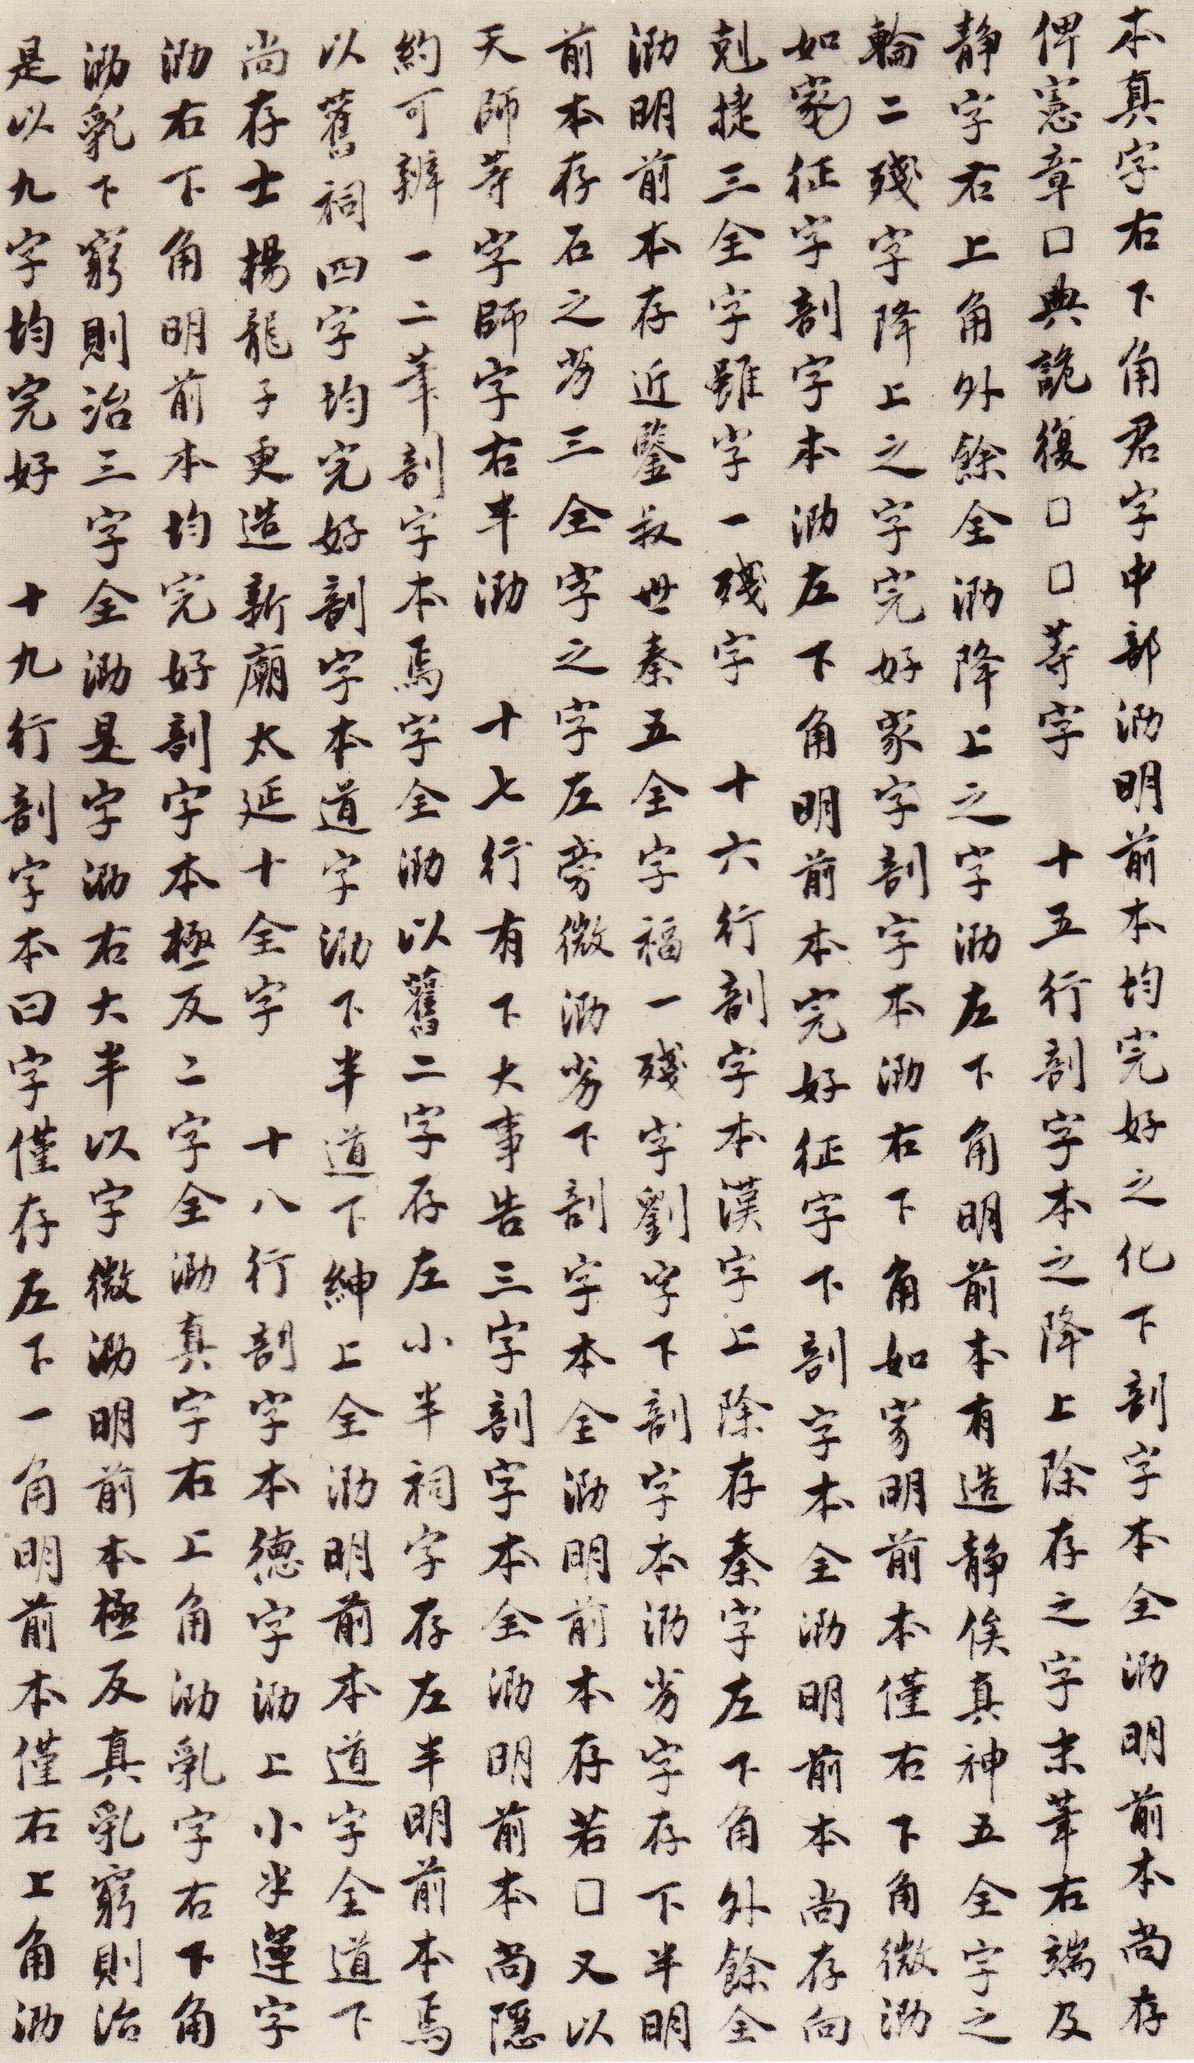 本真字右下角君字中部泐明前本均完好之化下剖字本全泐明前本尚存
俾憲章□典詭復□□等字　十五行剖字本之降上除存之字末筆右端及
静字右上角外餘全泐降上之字泐左下角明前本有造静俟真神五全字之
輪二殘字降上之字完好家字剖字本泐右下角如家明前本僅右下角微泐
如家征字剖字本泐左下角明前本完好征字下剖字本全泐明前本尚存向
剋捷三全字雖字一殘字　十六行剖字本漢字上除存秦字左下角外餘全
泐明前本存近鑒叔世秦五全字福一殘字劉字下剖字本泐劣字存下半明
前本存石之劣三全字之字左旁微泐劣下剖字本全泐明前本存若□又以
天師等字師字右半泐　十七行有下大事告三字剖字本全泐明前本尚隱
約可辨一二筆剖字本焉字全泐以舊二字存左小半祠字存左半明前本焉
以舊祠四字均完好剖字本道字泐下半道下紳上全泐明前本道字全道下
尚存士楊龍子更造新廟太延十全字　十八行剖字本德字泐上小半運字
泐右下角明前本均完好剖字本極反二字全泐真字右上角泐乳字右下角
泐乳下窮則治三字全泐是字泐右大半以字微泐明前本極反真乳窮則治
是以九字均完好　十九行剖字本曰字僅存左下一角明前本僅右上角泐